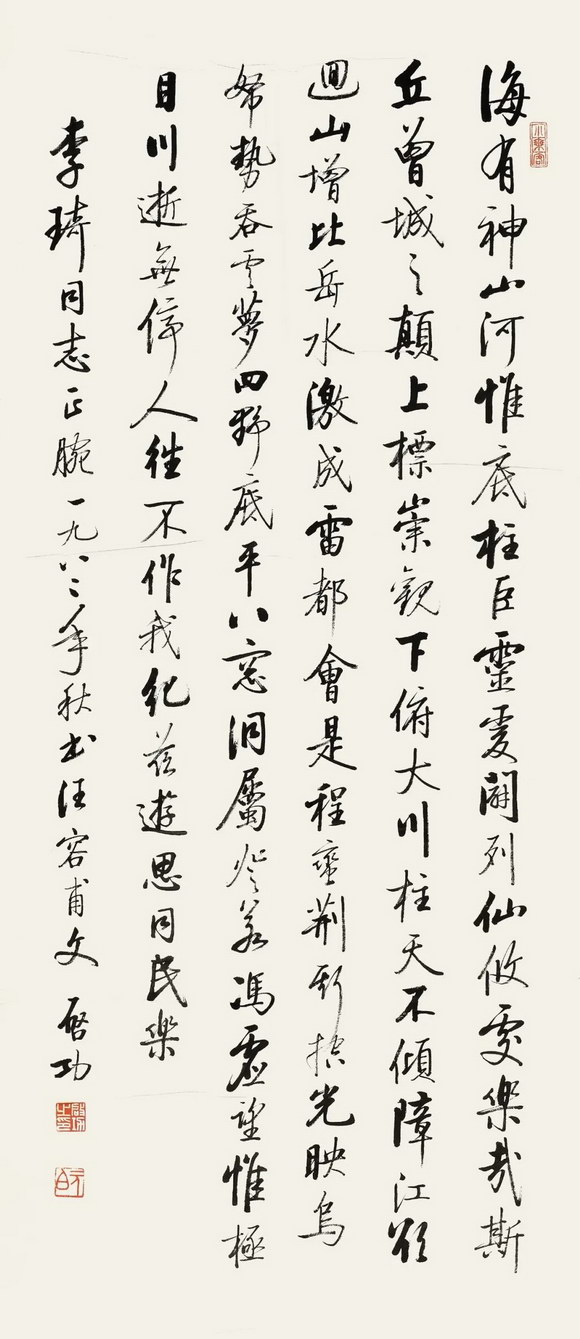 海有神山河惟底柱巨靈爰闢列仙攸處樂哉斯
丘曾城之顛上標崇觀下俯大川柱天不傾障江欲
迴山增比岳水激成雷都會是程蠻荊斯控光映烏
帑勢吞雲夢四野底平八窗洞屬登若馮虛望惟極
目川逝無停人往不作我紀茲遊思同民樂
李琦同志正腕一九八二年秋書汪容甫文 啓功
啟功之印
元白